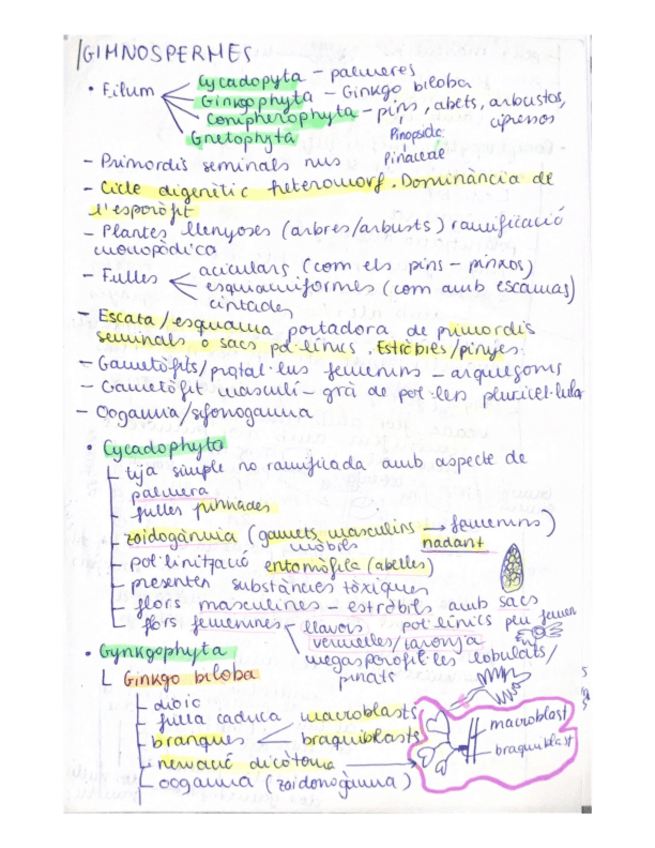 GIMNOSPERMES
• Filum
Cycadopyta – palmeres
Ginkgophyta – Ginkgo biloba
Conipherophyta – pins, abets, arbustos, cipressos
Pinopsida:
Pinaceae
Gnetophyta
– Primordis seminals nus
– Cicle digenètic heteromorf. Dominància de
l'esporòfit
– Plantes llenyoses (arbres/arbusts) ramificació
monopòdica
– Fulles
aciculars (com els pins – pinxos)
esquamiformes (com amb escamas)
cintades
– Escata/esquama portadora de primordis
seminals o sacs pol·línics. Estròbils/pinyes.
– Gametòfits/protal·lus femenins – arquegonis
– Gametòfit masculí – grà de pol·len pluricel·lular
– Oogamia/sifonogamia
• Cycadophyta
tija simple no ramificada amb aspecte de
palmera
fulles pinnades
zoidogàmia (gamets masculins → femenins)
mòbils nadant
pol·linització entomòfila (abelles)
presenten substàncies tòxiques
flors masculines – estròbils amb sacs
pol·línics
flors femenines
llavors
vermelles/taronja
megasporofil·les lobulats/
pinats
• Gynkgophyta
Ginkgo biloba
dioic
fulla caduca
branques
macroblasts
braquiblasts
nervació dicòtoma
oogamia (zoidonogàmia)
macroblast
braquiblast